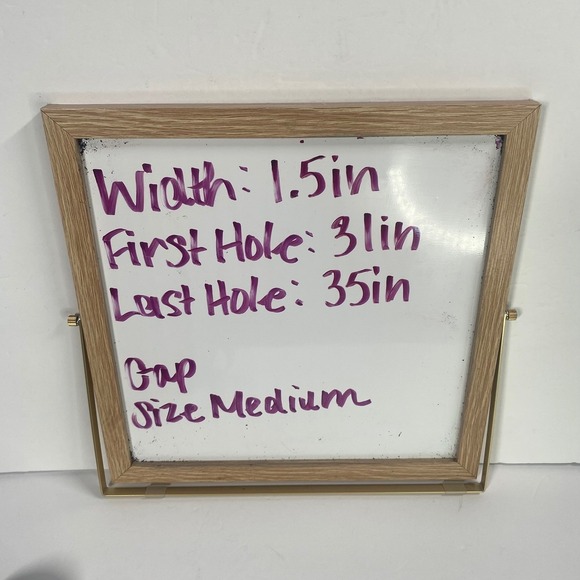 Width: 1.5in
First Hole: 31in
Last Hole: 35in
Gap
Size Medium